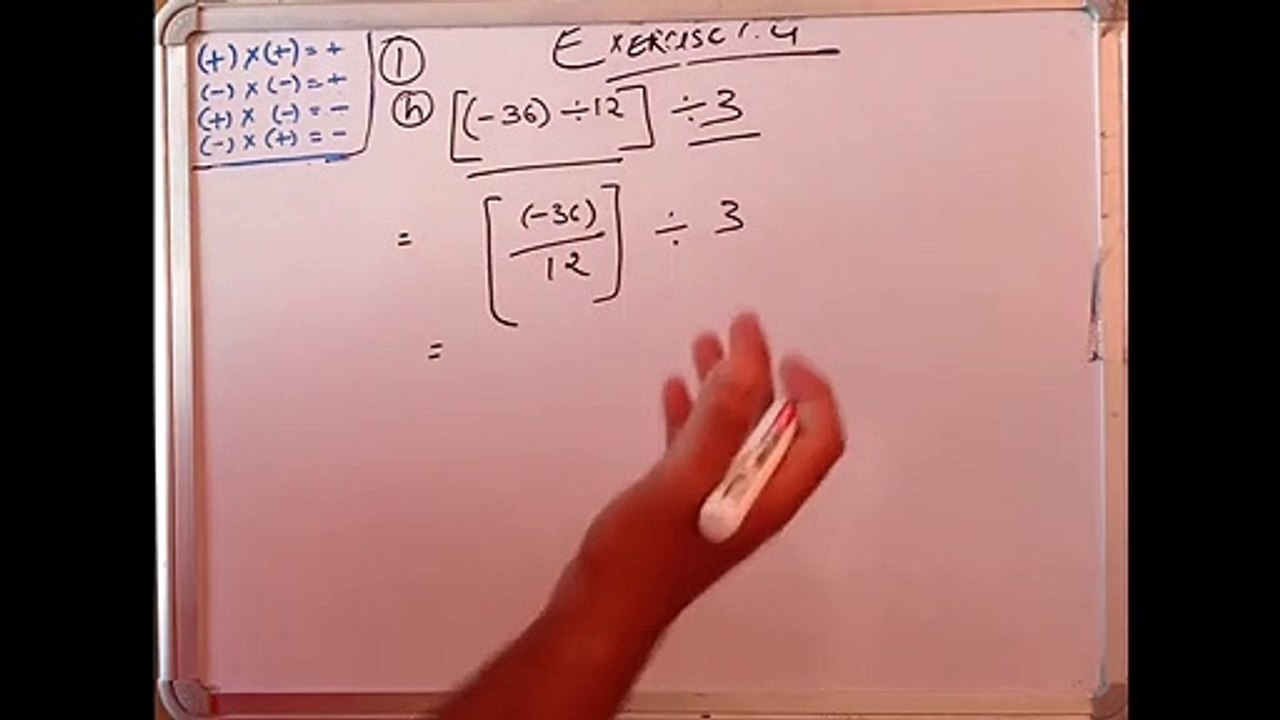 (+) × (+) = +
(-) × (-) = +
(+) × (-) = -
(-) × (+) = -
EXERCISE 1.4
①
ⓗ [(-36) ÷ 12] ÷ 3
= [(-36)/12] ÷ 3
=